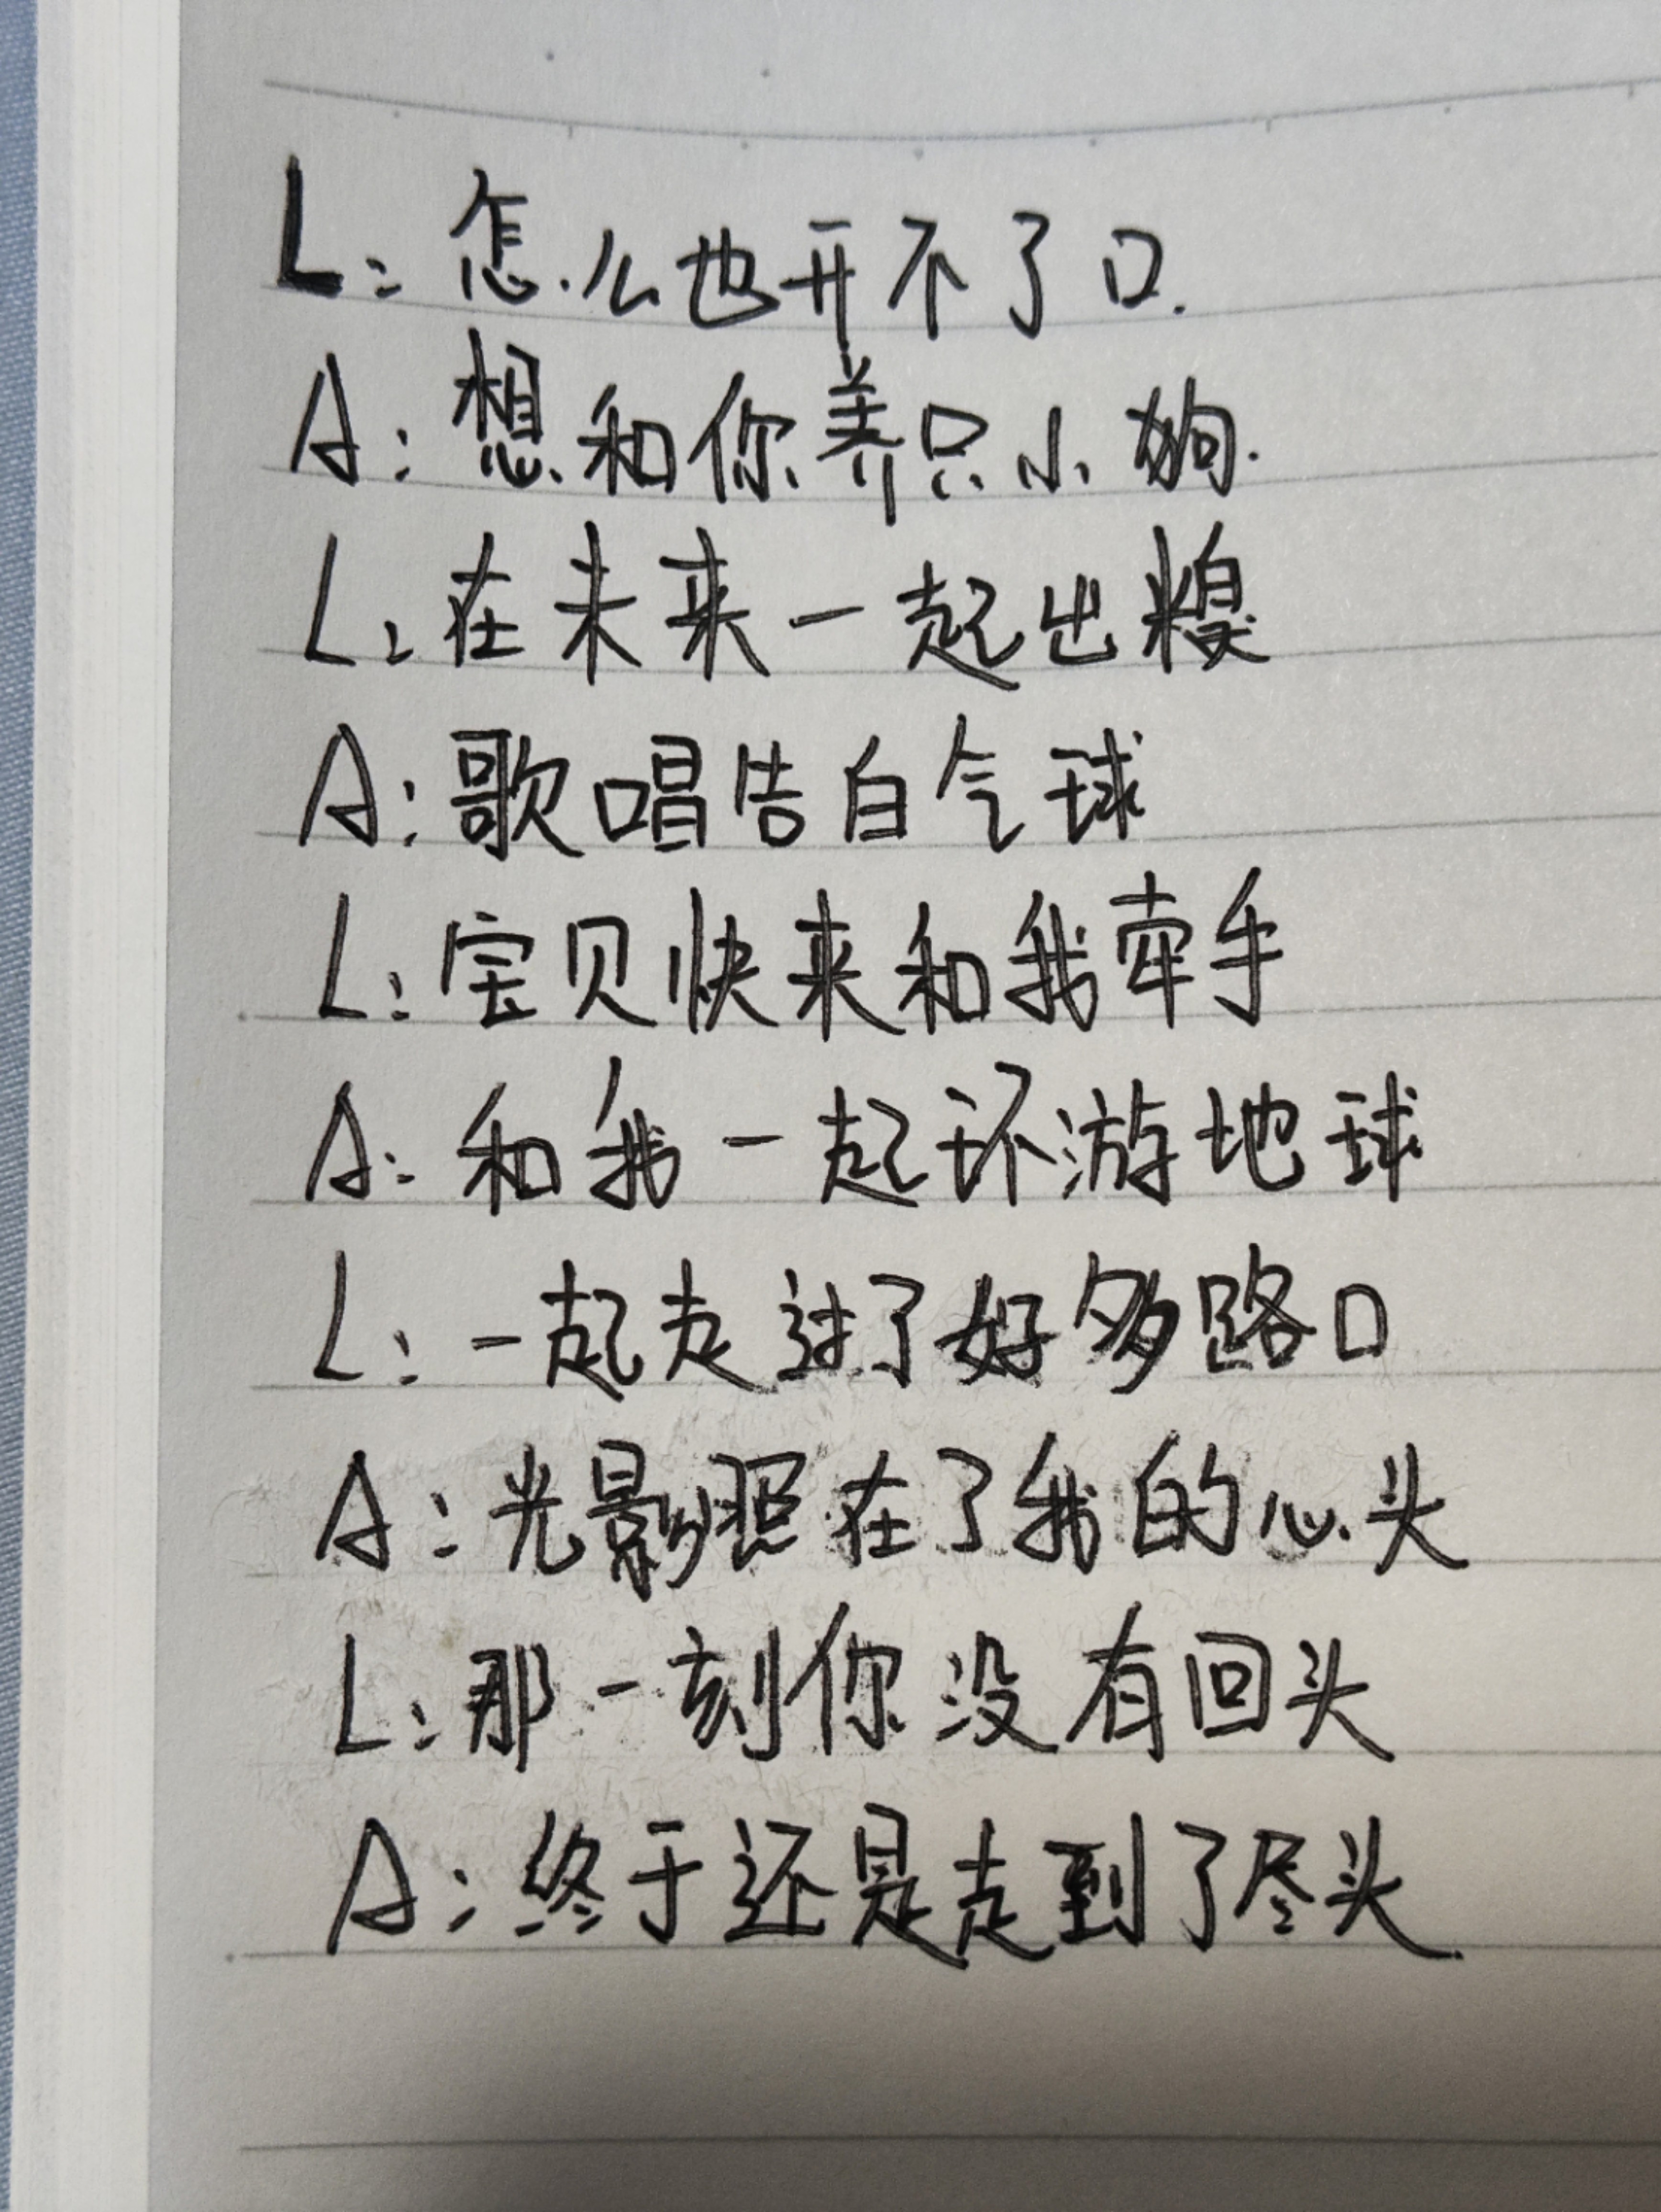 L：怎么也开不了口.
A：想和你养只小狗.
L：在未来一起出糗
A：歌唱告白气球
L：宝贝快来和我牵手
A：和我一起环游地球
L：一起走过了好多路口
A：光影照在了我的心头
L：那一刻你没有回头
A：终于还是走到了尽头.